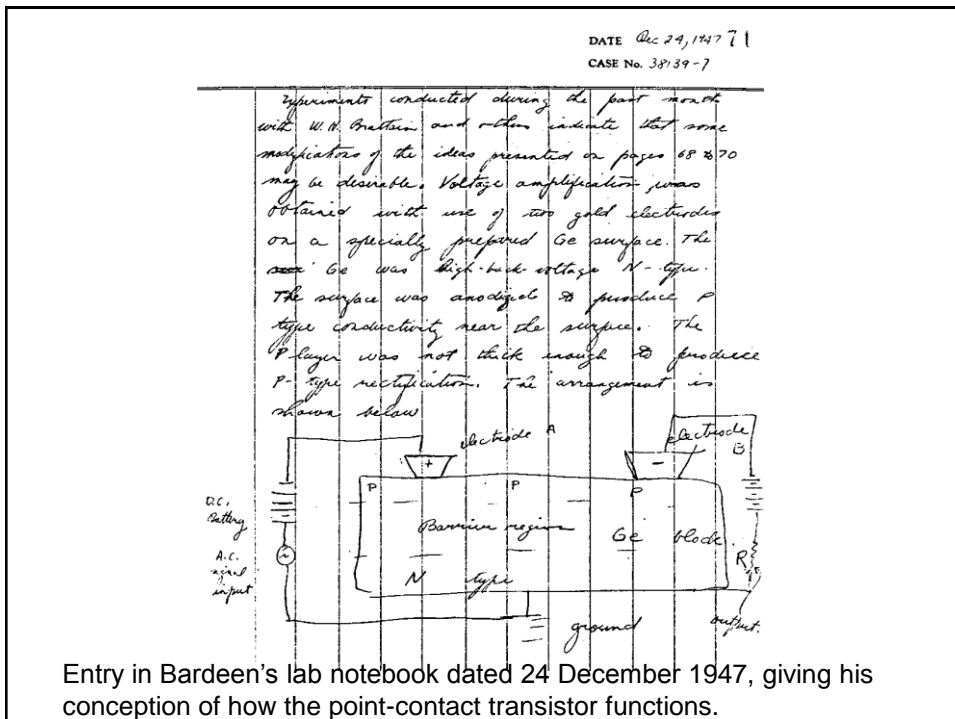 DATE Dec 24, 1947 71
CASE No. 38139-7
Experiments conducted during the past month
with W. H. Brattain and others indicate that some
modifications of the ideas presented on pages 68 to 70
may be desirable. Voltage amplification was
obtained with use of two gold electrodes
on a specially prepared Ge surface. The
Ge was high-back-voltage N-type.
The surface was anodized to produce P
type conductivity near the surface. The
P layer was not thick enough to produce
P-type rectification. The arrangement is
shown below
electrode A
electrode
B
+
-
P P P
D.C.
Battery
Barrier region Ge block.
A.C.
signal
input
R
N type
ground
output.
Entry in Bardeen’s lab notebook dated 24 December 1947, giving his
conception of how the point-contact transistor functions.